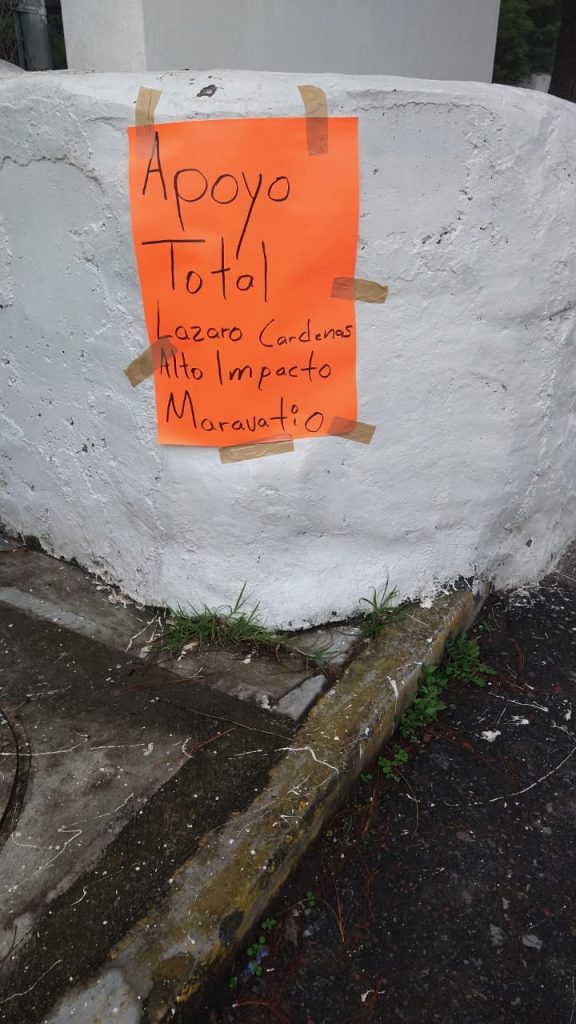 Apoyo
Total
Lazaro Cardenas
Alto Impacto
Maravatio